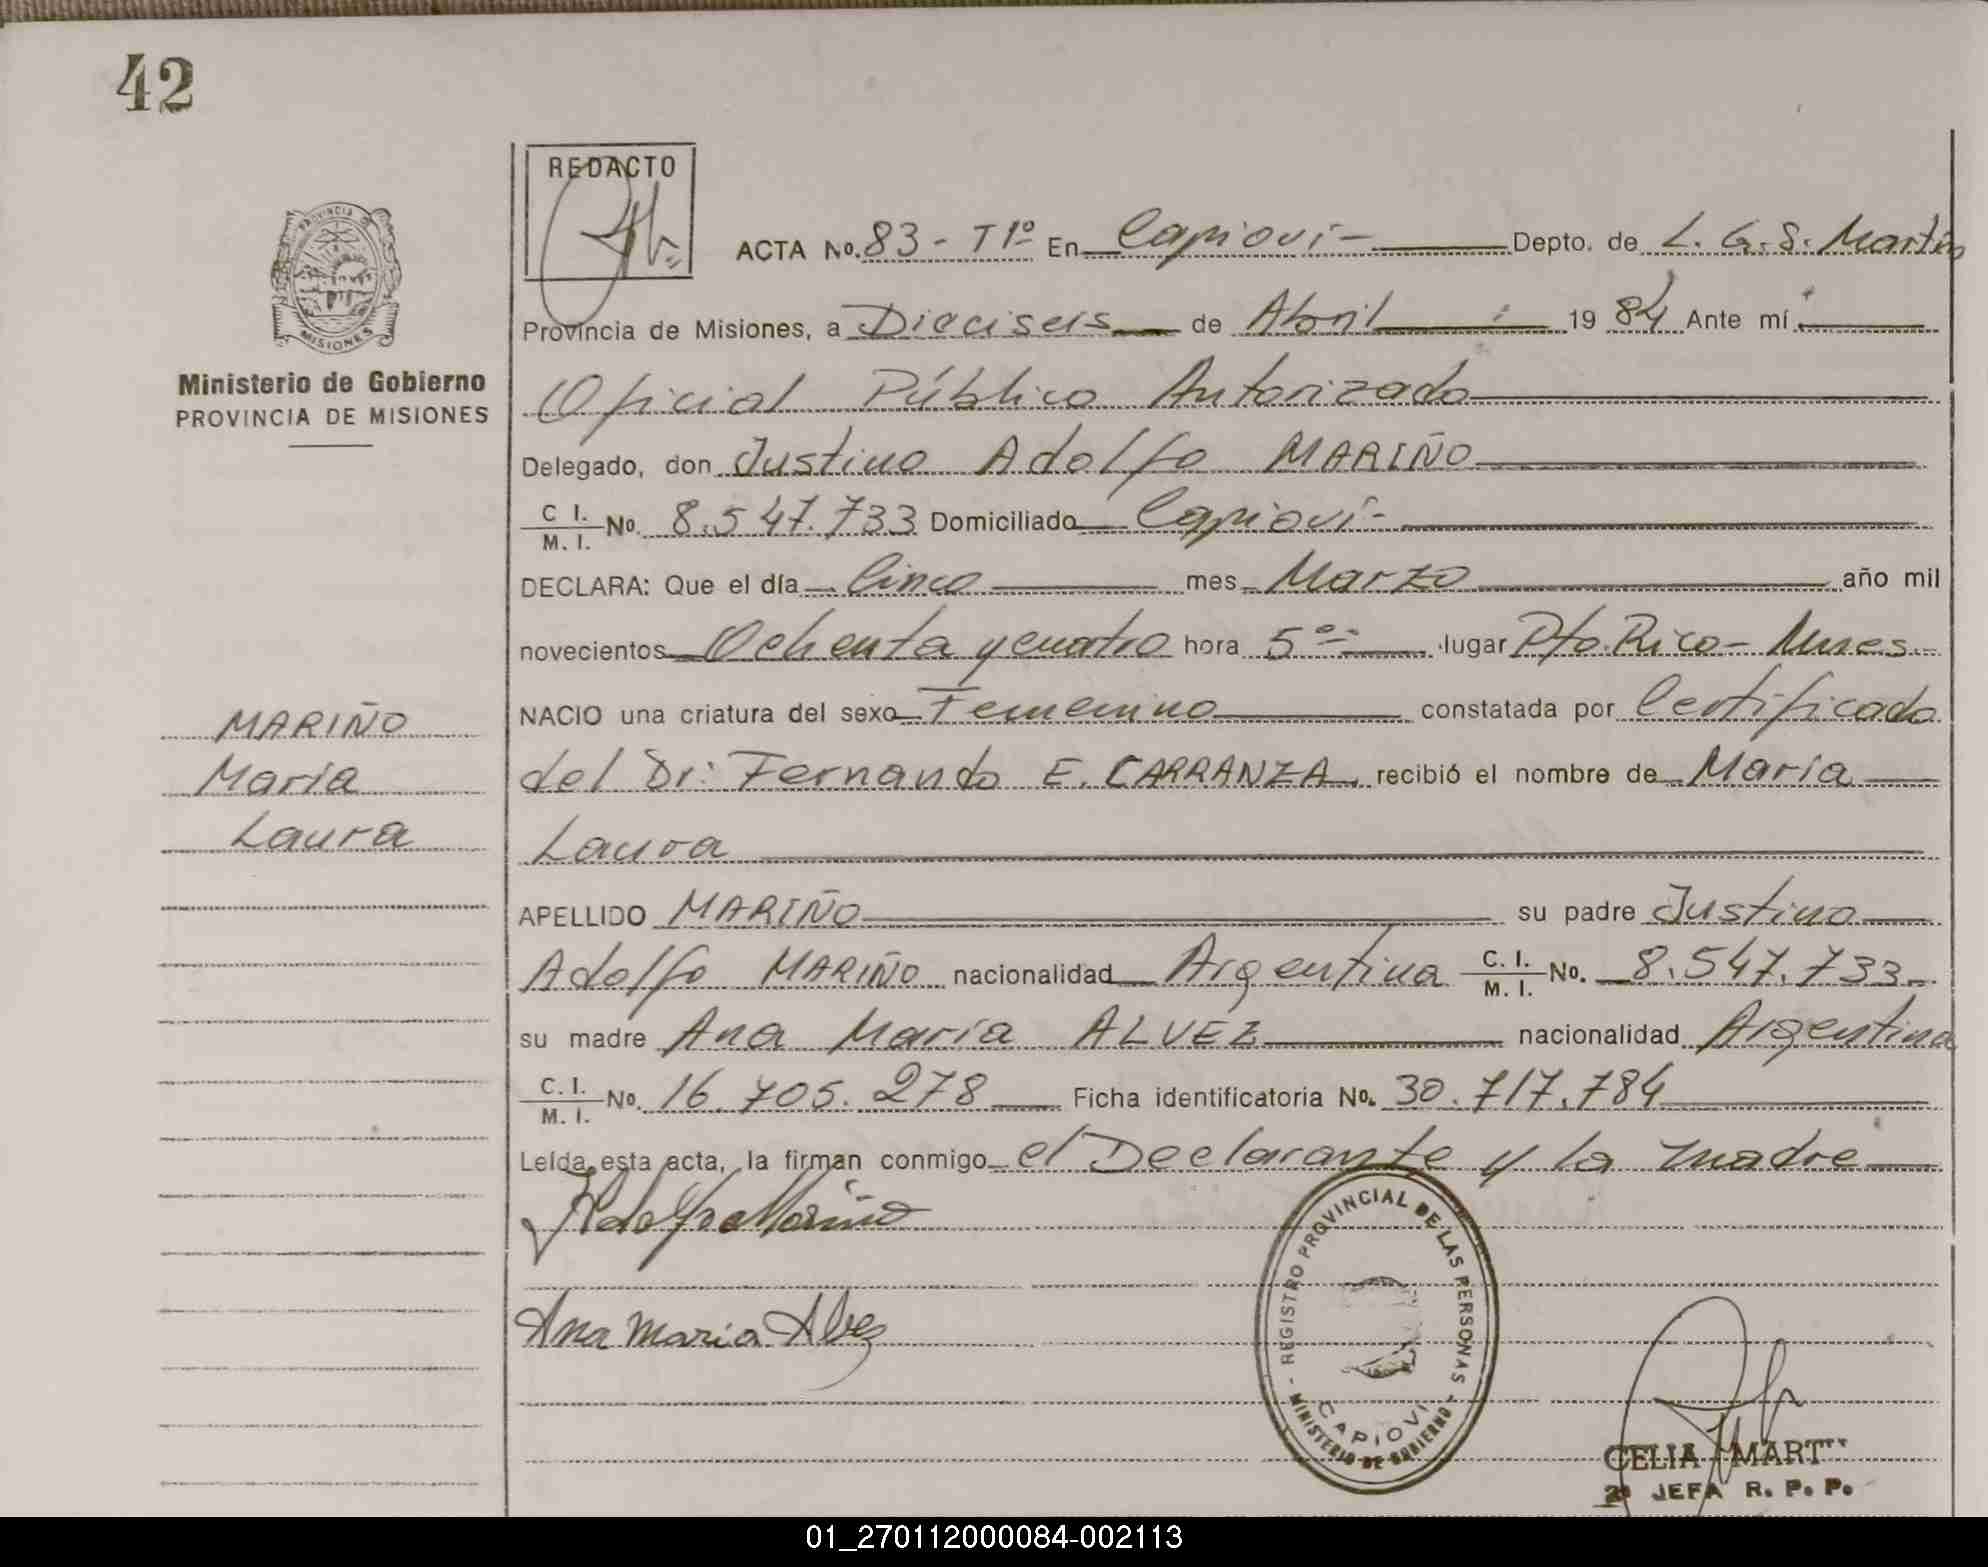 42
REDACTO
PROVINCIA DE
MISIONES
Ministerio de Gobierno
PROVINCIA DE MISIONES
ACTA No. 83 - T1º En Capioví - Depto. de L. G. S. Martín
Provincia de Misiones, a Dieciseis de Abril 19 84 Ante mí
Oficial Público Autorizado
Delegado, don Justino Adolfo MARIÑO
C I. / M. I. No. 8.547.733 Domiciliado Capioví -
DECLARA: Que el día Cinco mes Marzo año mil
novecientos Ochenta y cuatro hora 5 lugar Pto. Rico -
NACIO una criatura del sexo Femenino constatada por Certificado
del Dr: Fernando E. CARRANZA, recibió el nombre de María
Laura
APELLIDO MARIÑO su padre Justino
Adolfo MARIÑO nacionalidad Argentina C. I. / M. I. No. 8.547.733
su madre Ana María ALVEZ nacionalidad Argentina
C. I. / M. I. No. 16.705.278 Ficha identificatoria No. 30.717.784
Leída esta acta, la firman conmigo el Declarante y la madre
MARIÑO
María
Laura
Adolfo Mariño
Ana maria Alvez
REGISTRO PROVINCIAL DE LAS PERSONAS
CAPIOVI
- MINISTERIO DE GOBIERNO -
CELIA
2ª JEFA R. P. P.
01_270112000084-002113